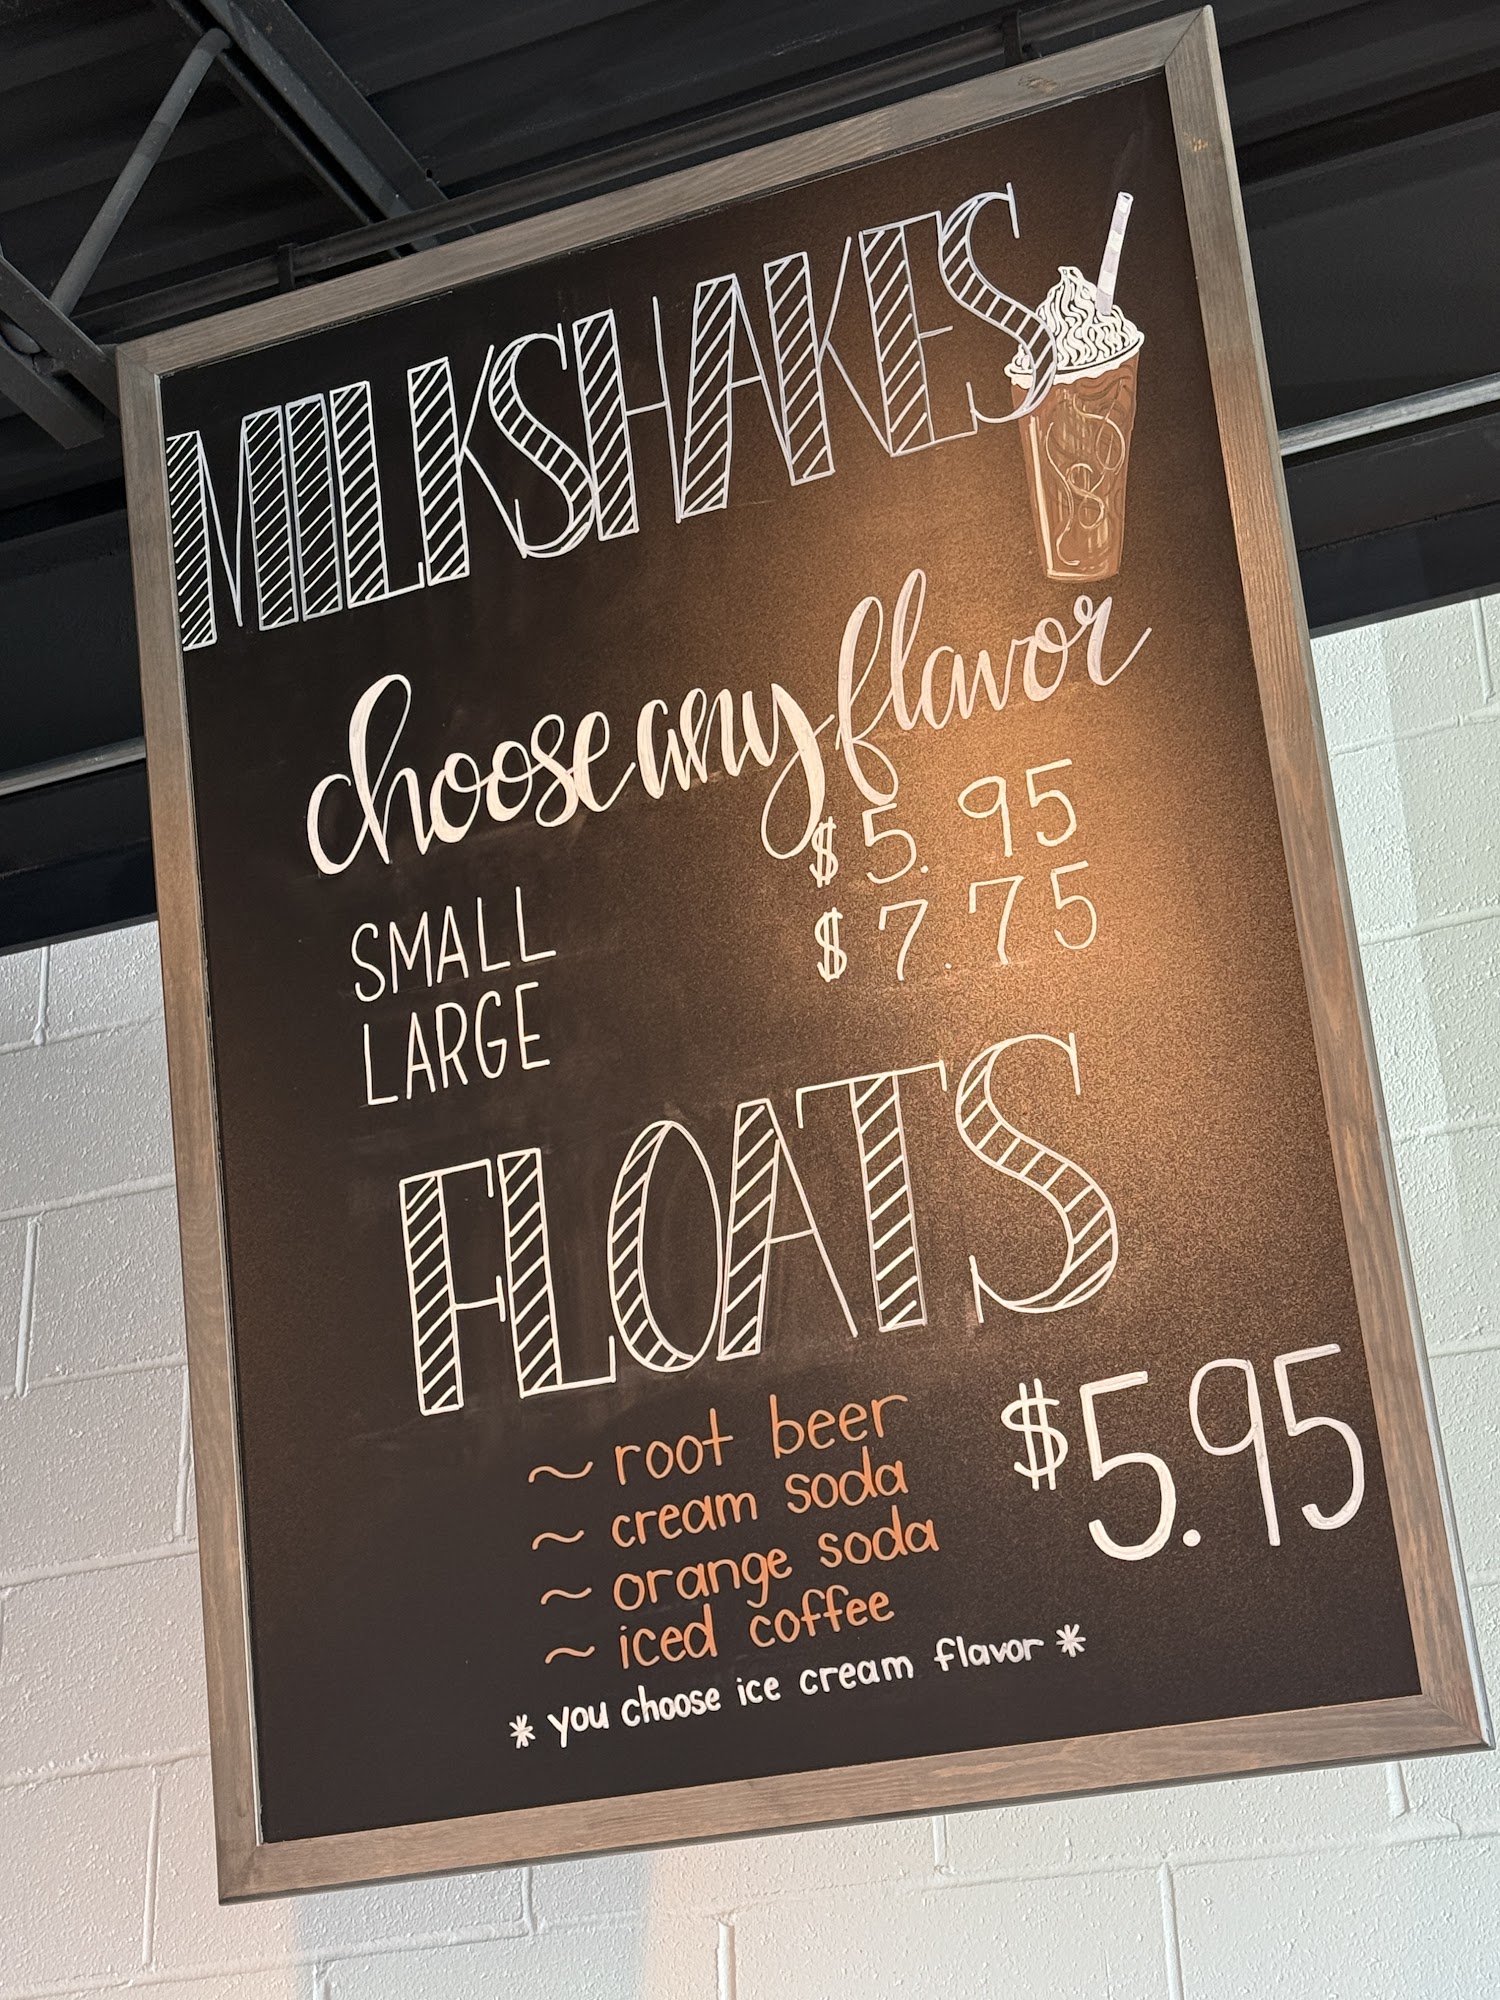 MILKSHAKES
choose any flavor
SMALL $5.95
LARGE $7.75
FLOATS
~ root beer $5.95
~ cream soda
~ orange soda
~ iced coffee
* you choose ice cream flavor *